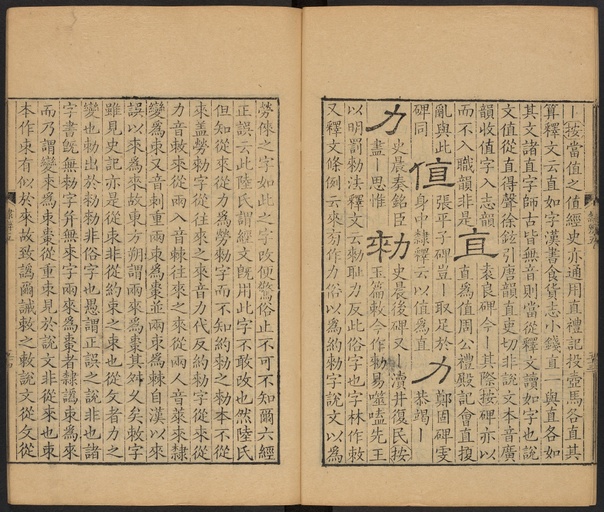 丨按當值之值經史亦通用直禮記投壺馬各直其
算釋文云直如字漢書食貨志小錢直一與直各如
其文諸直字師古皆無音則當從釋文讀如字也說
文值從直得聲徐鉉引唐韻直吏切非說文本音廣
韻收值字入志韻
而不入職韻非是
直
袁良碑今丨其際按碑亦以
直為值周公禮殿記會直擾
亂與此
碑同
值
張平子碑豈丨取足於
身中隸釋云以值為直
力
鄭固碑雯
恭竭丨
力
史晨奏銘臣
盡丨思惟
勑
史晨後碑又丨瀆井復民按
玉篇敕今作勑易噬嗑先王
以明罰勑法釋文云勑恥力反此俗字也字林作敕
又釋文條例云來旁作力俗以為約勑字說文以為
勞倈之字如此之字改便驚俗止不可不知爾六經
正誤云此陸氏謂經文旣用此字不敢改也然陸氏
但知從來從力為勞勑字而不知約勑之勑本不從
來葢勞勑字從往來之來音力代反約勑字從來從
力音敕來從兩入音棘往來之來從兩人音萊來隸
變為束又音刺重兩束為棗並兩束為棘自漢以來
誤以來為來故東方朔謂兩來為棗其舛乆矣敕字
雖見史記亦是從束非從約束之束也從攵者力之
變也勅出於勑勑非俗字也愚謂正誤之說非也諸
字書旣無勑字幷無來字兩來為棗者隸譌朿為來
而乃謂變來為朿棗從重朿見於說文非從來也朿
本作朿有似於來故致譌爾誡敕之敕說文從攵從